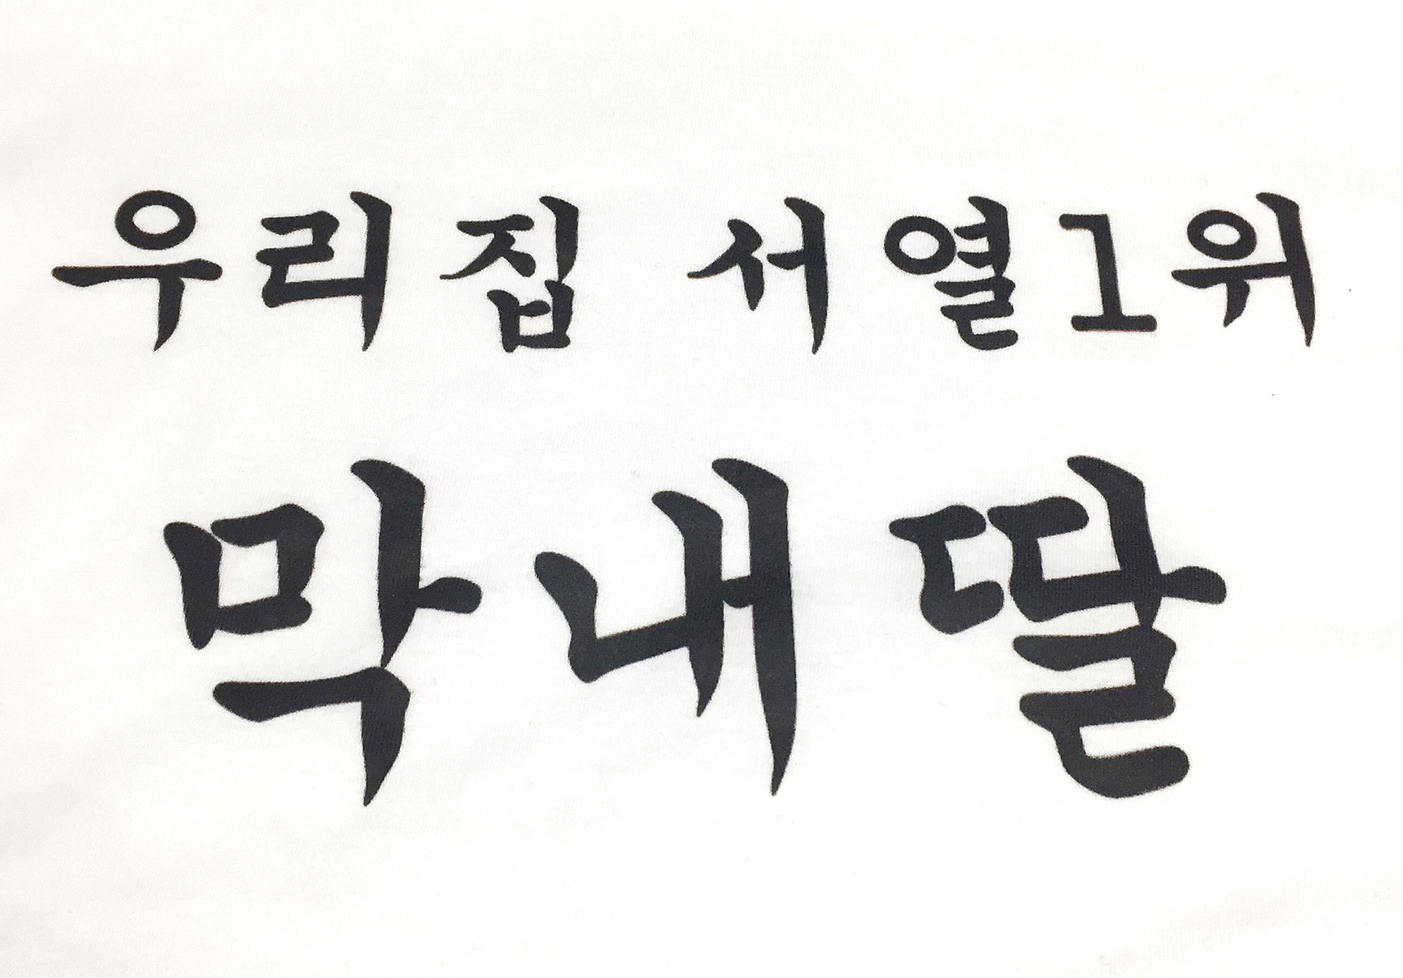 우리집 서열1위
막내딸